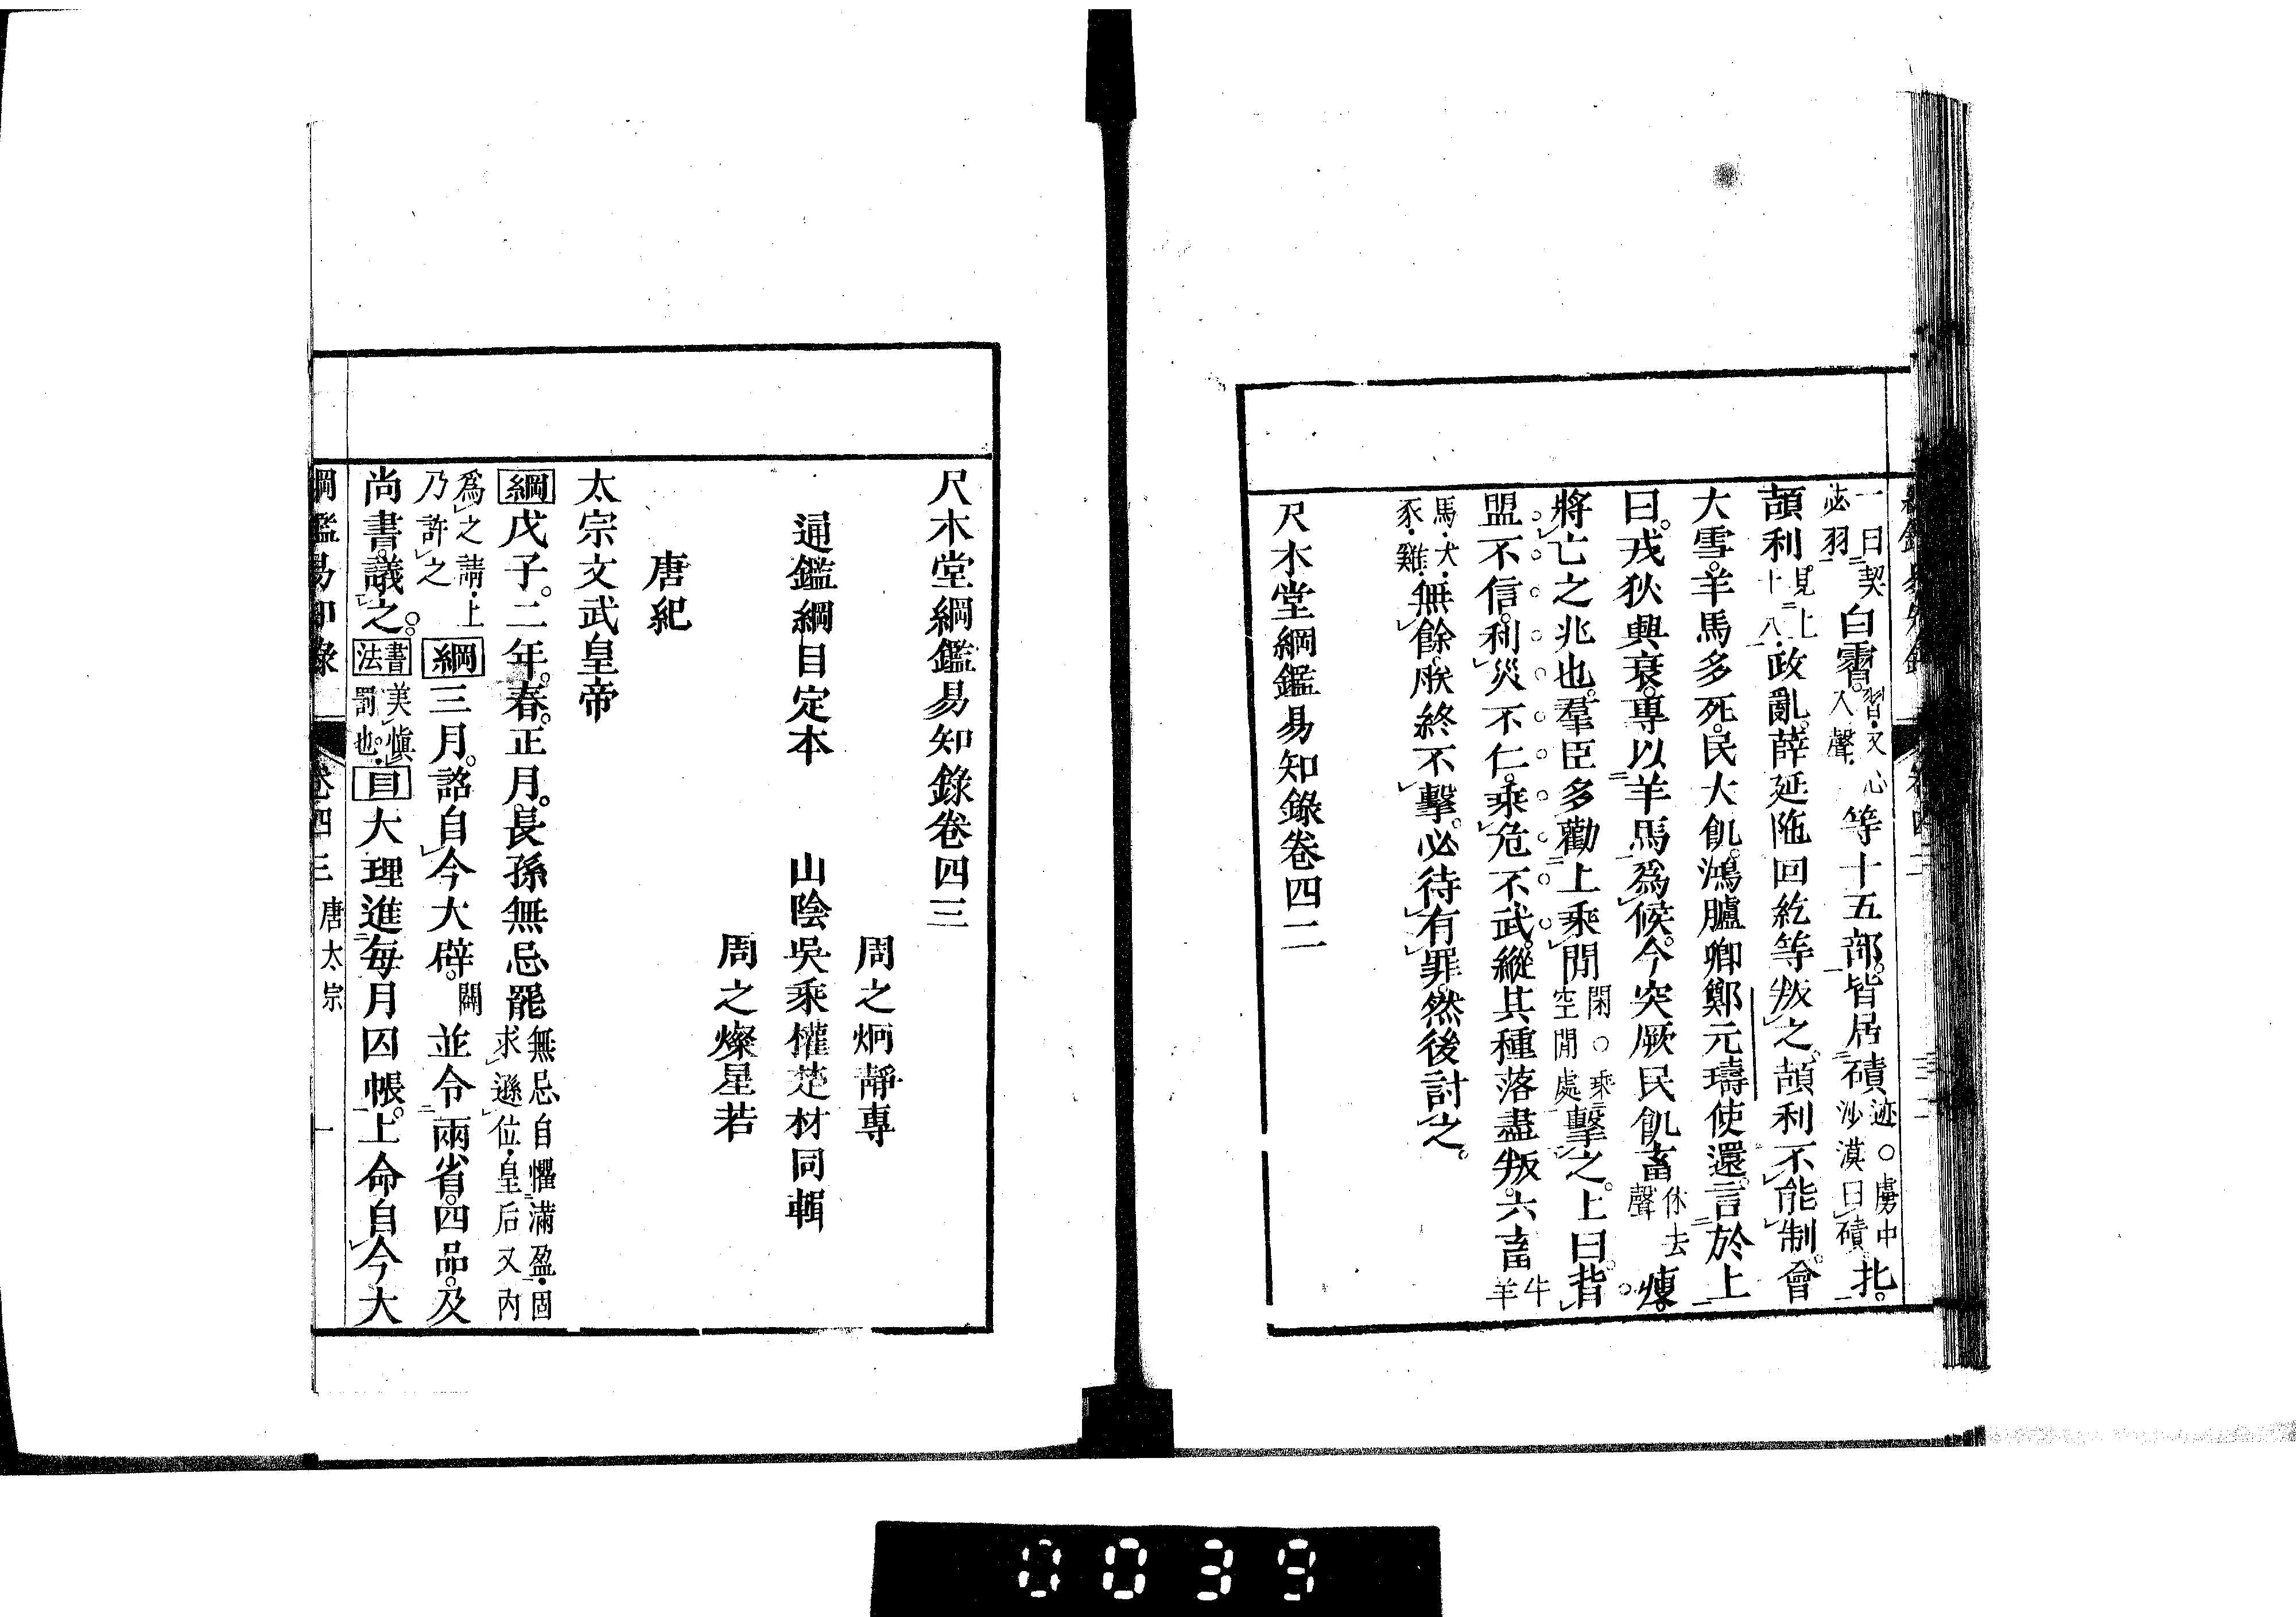 一曰契苾羽白霫習又心入聲等十五部。皆居磧迹○虜中沙漠曰磧北。
頡利見上十八政亂。薛延陁回紇等叛之。頡利不能制。會
大雪。羊馬多死。民大飢。鴻臚卿鄭元璹使還。言於上
曰。戎狄興衰。專以羊馬爲候。今突厥民飢畜休去聲瘦。
將亡之兆也。羣臣多勸上乘閒閑○乘空閒處擊之。上曰。背
盟不信。利災不仁。乘危不武。縱其種落盡叛。六畜牛羊
馬犬豕雞無餘。朕終不擊。必待有罪。然後討之。
尺木堂綱鑑易知錄卷四二
尺木堂綱鑑易知錄卷四三
周之炯靜專
通鑑綱目定本 山陰吳乘權楚材同輯
周之燦星若
唐紀
太宗文武皇帝
綱戊子。二年。春。正月。長孫無忌罷無忌自懼滿盈固求遜位皇后又內
爲之請上乃許之綱三月。詔自今大辟。闢並令兩省。四品。及
尚書。議之。書法美慎罰也目大理進每月囚帳。上命自今大
綱鑑易知錄 卷四三 唐太宗 一
0039